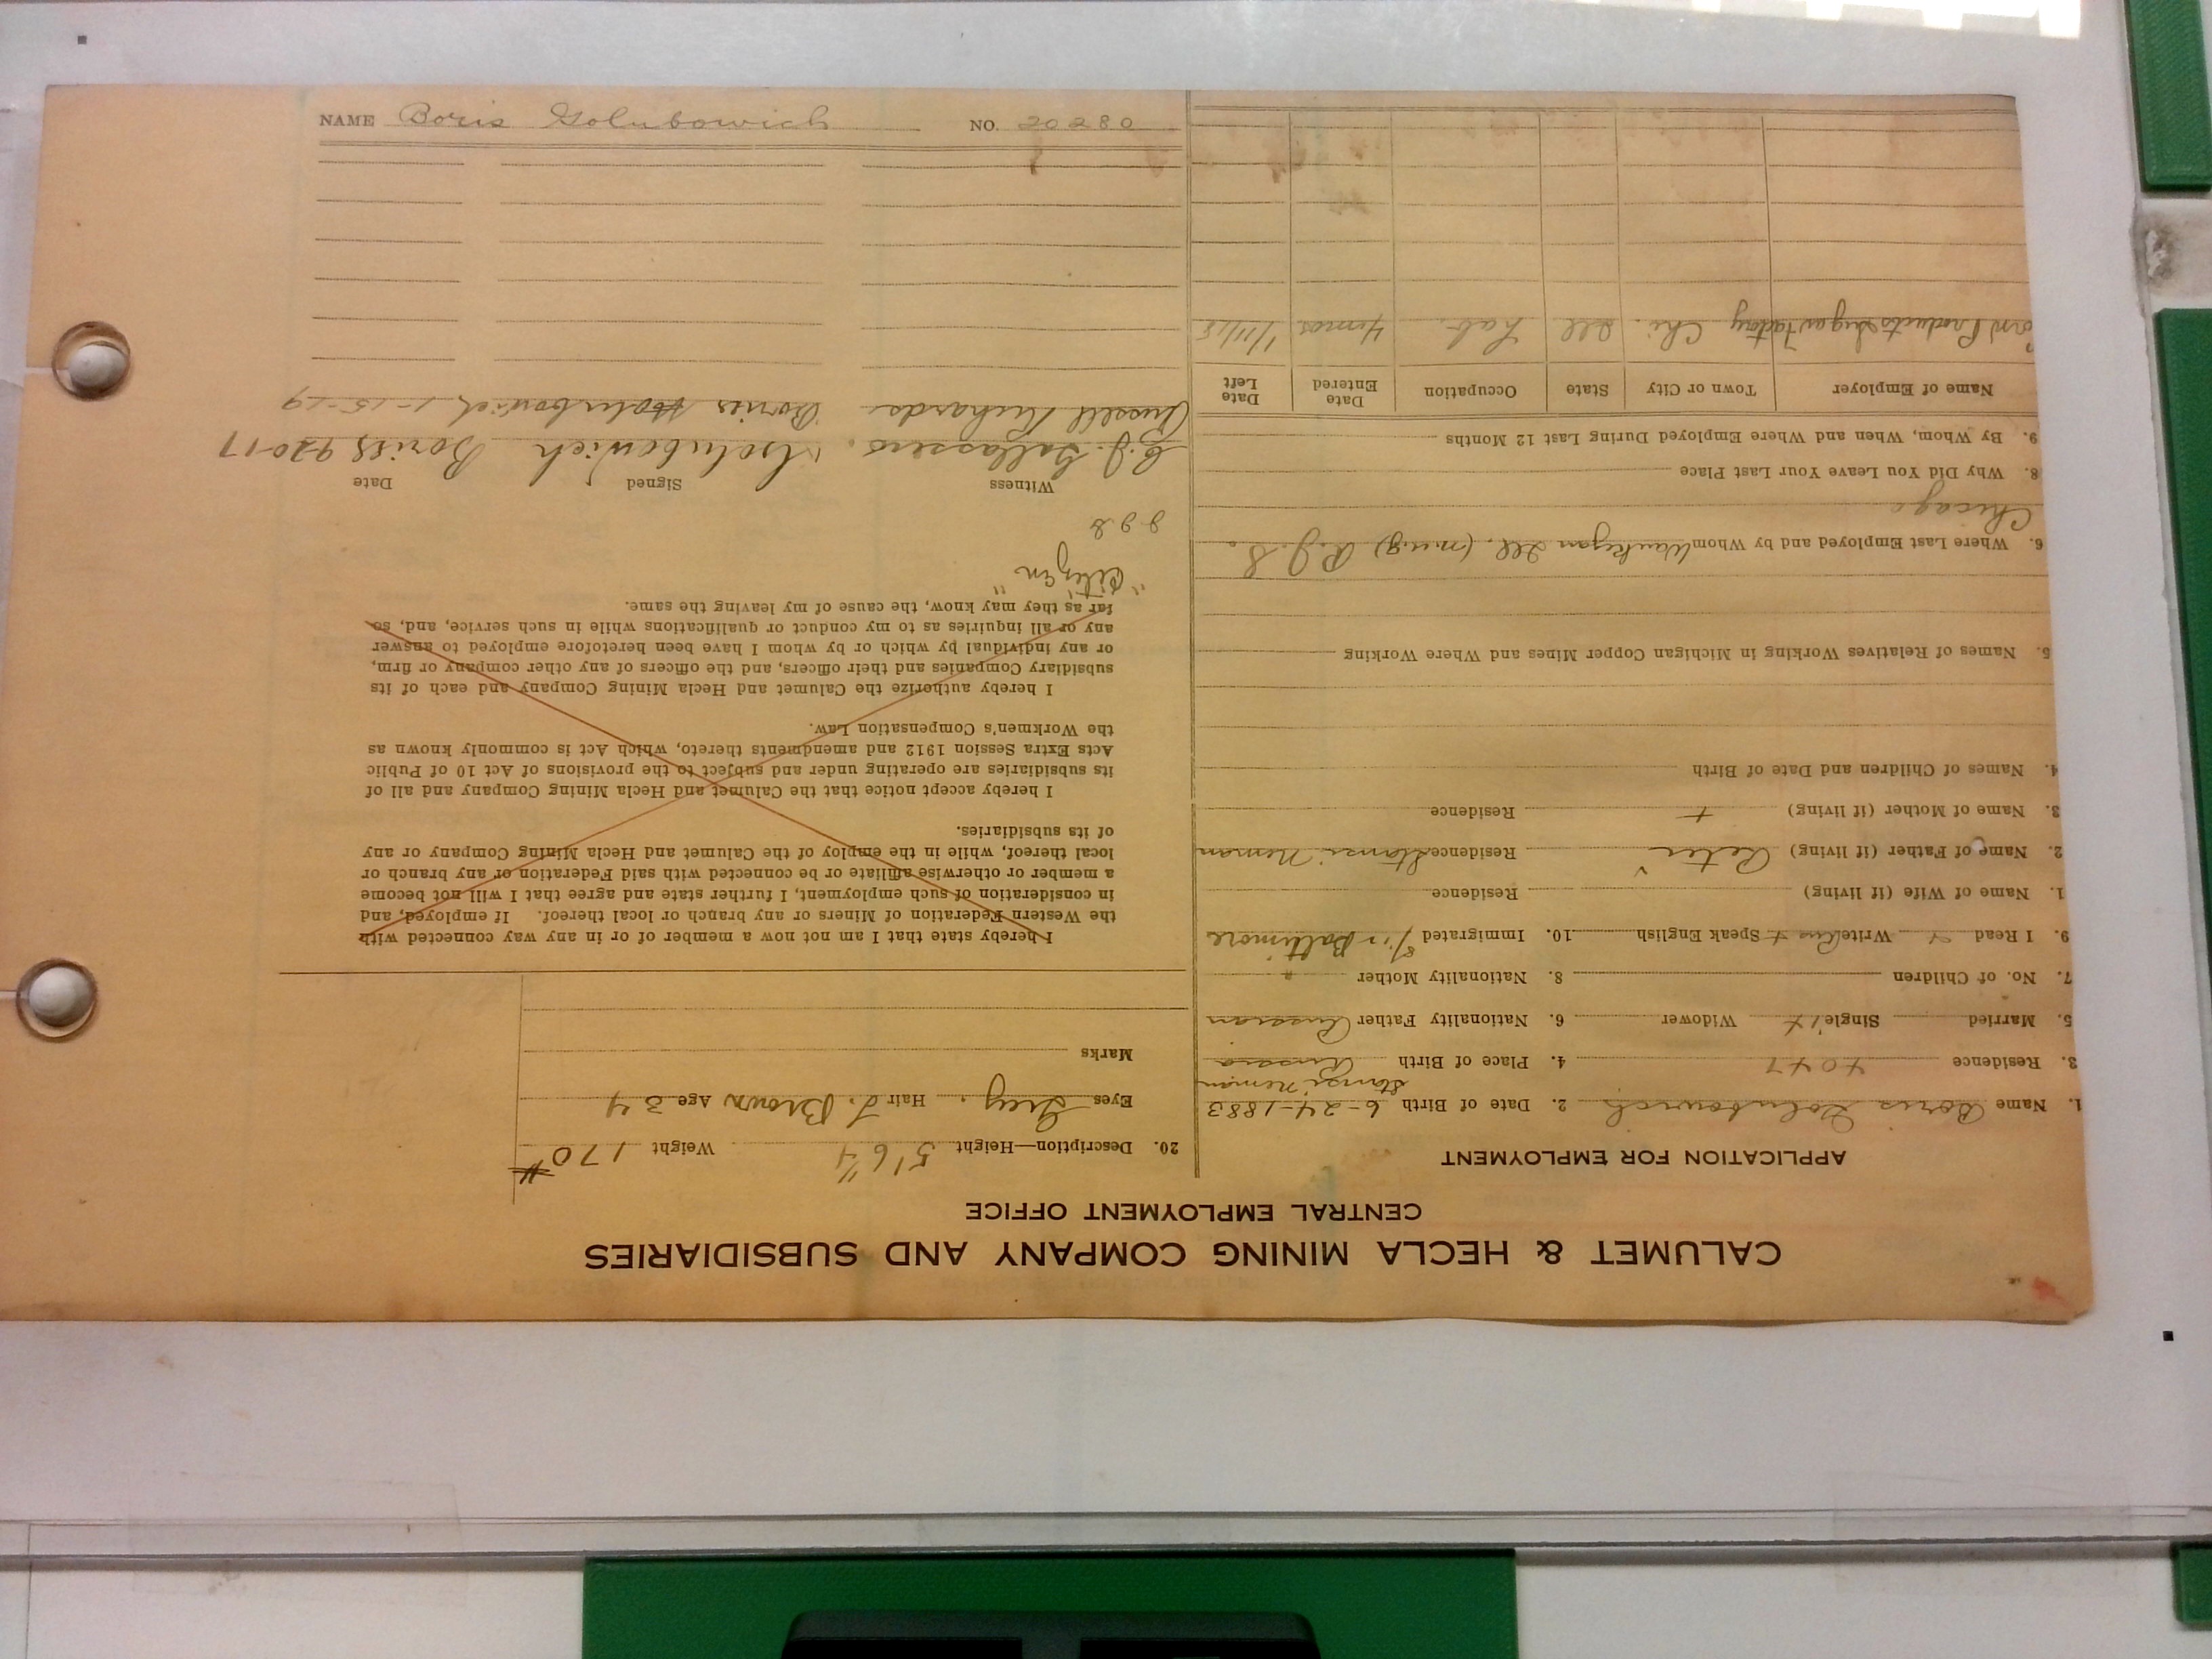 CALUMET & HECLA MINING COMPANY AND SUBSIDIARIES
CENTRAL EMPLOYMENT OFFICE
APPLICATION FOR EMPLOYMENT
1. Name Boris Golubowich 2. Date of Birth 6-24-1883
3. Residence 4047 4. Place of Birth Russia
5. Married Single + Widower 6. Nationality Father Russian
7. No. of Children 8. Nationality Mother "
9. I Read Write Speak English 10. Immigrated Baltimore
1. Name of Wife (if living) Residence
2. Name of Father (if living) Peter Residence
3. Name of Mother (if living) + Residence
4. Names of Children and Date of Birth
5. Names of Relatives Working in Michigan Copper Mines and Where Working
6. Where Last Employed and by Whom Waukegan Ill.
Chicago
8. Why Did You Leave Your Last Place
9. By Whom, When and Where Employed During Last 12 Months
Name of Employer Town or City State Occupation Date Entered Date Left
Products Sugar Factory Chi. Ill Lab. 4 mos 1/11/18
20. Description—Height 5' 6 1/4" Weight 170 #
Eyes Grey. Hair L. Brown Age 34
Marks
I hereby state that I am not now a member of or in any way connected with
the Western Federation of Miners or any branch or local thereof. If employed, and
in consideration of such employment, I further state and agree that I will not become
a member or otherwise affiliate or be connected with said Federation or any branch or
local thereof, while in the employ of the Calumet and Hecla Mining Company or any
of its subsidiaries.
I hereby accept notice that the Calumet and Hecla Mining Company and all of
its subsidiaries are operating under and subject to the provisions of Act 10 of Public
Acts Extra Session 1912 and amendments thereto, which Act is commonly known as
the Workmen's Compensation Law.
I hereby authorize the Calumet and Hecla Mining Company and each of its
subsidiary Companies and their officers, and the officers of any other company or firm,
or any individual by which or by whom I have been heretofore employed to answer
any or all inquiries as to my conduct or qualifications while in such service, and, so
far as they may know, the cause of my leaving the same.
"Citizen"
Witness Signed Date
Golubowich Boris 9-20-17
Russell Richards Boris Holubowich 1-15-19
NAME Boris Golubowich NO. 20280